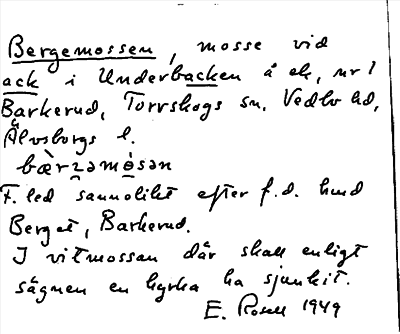 Bergemossen, mosse vid
ack i Underbacken å ek, nr 1
Barkerud, Torrskogs sn. Vedbo hd,
Älvsborgs l.
bæ̀rzəmo̯sən
F. led sannolikt efter f.d. hmd
Berget, Barkerud.
I vitmossan där skall enligt
sägnen en kyrka ha sjunkit.
E. Rosell 1949